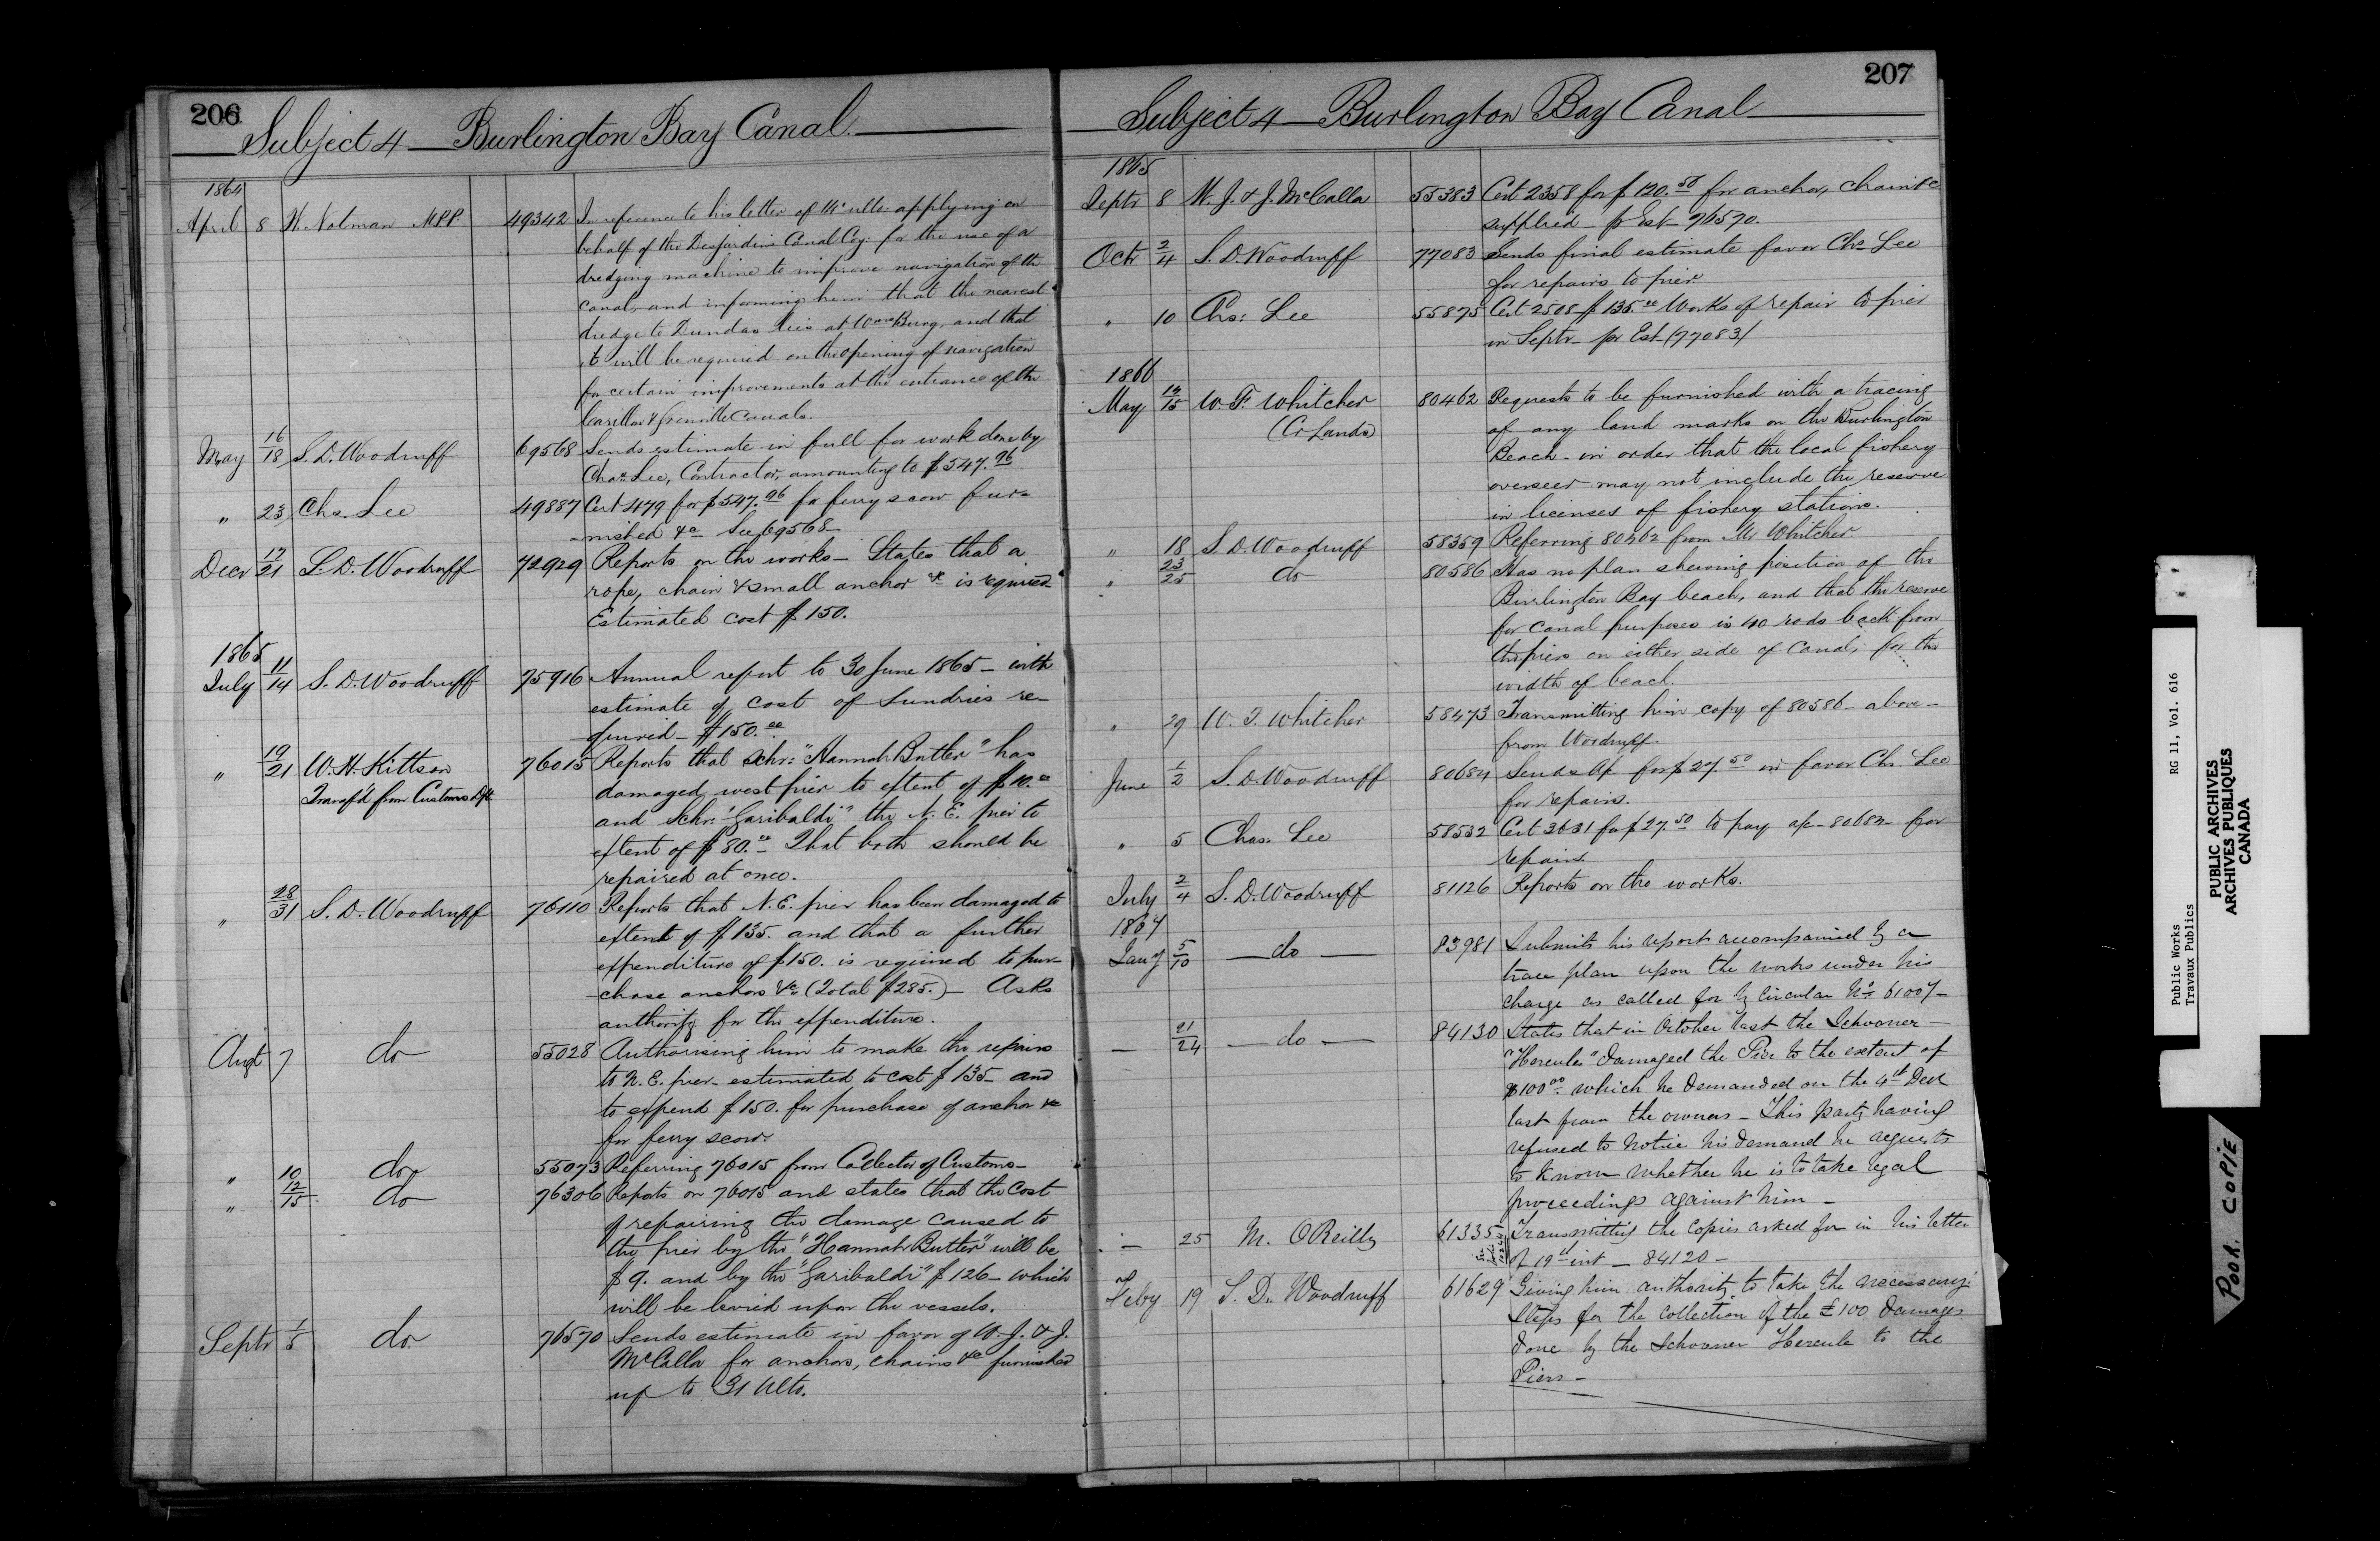 206
Subject 4 — Burlington Bay Canal.
1864
April 8 W. Notman M.P.P. 49342 In reference to his letter of 14' ulto applying on
behalf of the Desjardins Canal Coy. for the use of a
dredging machine to improve navigation of th
canal, and informing him that the nearest
dredge to Dundas lies at and that
it will be required on the opening of navigation
for certain improvements at the entrance of the
Carillon & Grenville Canals.
May 16/18 S. D. Woodruff 69568 Sends estimate in full for work done by
Chas. Lee, Contractor, amounting to $547.96
" 23 Chs. Lee 49887 Cert 479 for $547.96 for ferry scow fur-
nished &c See 69568—
Decr 17/21 S. D. Woodruff 72929 Reports on the works — States that a
rope, chain & small anchor &c is required
Estimated cost $150.
1865
July 11/14 S. D. Woodruff 75916 Annual report to 30 June 1865 — with
estimate of cost of sundries re-
quired — $150.00
" 19/21 W. H. Kittson 76015 Reports that Schr: "Hannah Butler" has
Transf'd from Customs Dpt.
damaged west pier to extent of $10.00
and Schr: "Garibaldi" the N. E. pier to
extent of $80.00 That both should be
repaired at once.
" 28/31 S. D. Woodruff 76110 Reports that N. E. pier has been damaged to
extent of $135. and that a further
expenditure of $150. is required to pur-
chase anchors &c. (Total $285.) — Asks
authority for the expenditure.
Augt 7 do 55028 Authorising him to make the repairs
to N. E. pier — estimated to cost $135 — and
to expend $150. for purchase of anchor &c
for ferry scow.
" 10 do 55073 Referring 76015 from Collector of Customs —
" 12/15 do 76306 Reports on 76015 and states that the cost
of repairing the damage caused to
the pier by the "Hannah Butler" will be
$9. and by the "Garibaldi" $126 — which
will be levied upon the vessels.
Septr 1/5 do 76570 Sends estimate in favor of W. J. & J.
McCalla for anchors, chains &c furnished
up to 31 Ulto.
207
Subject 4 — Burlington Bay Canal
1865
Septr 8 W. J. & J. McCalla 55383 Cert 2358 for $120.50 for anchor, chain &c
supplied — pr Est — 76570.
Octr 2/4 S. D. Woodruff 77083 Sends final estimate favor Chs Lee
for repairs to pier.
" 10 Chs: Lee 55875 Cert 2508 $135.00 Works of repair to pier
in Septr — pr Est (77083)
1866
May 14/15 W. F. Whitcher 80462 Requests to be furnished with a tracing
(Cr Lands)
of any land marks on the Burlington
Beach — in order that the local fishery
overseer may not include the reserve
in licenses of fishery stations.
" 18 S. D. Woodruff 58359 Referring 80462 from Mr Whitcher.
" 23/25 do 80586 Has no plan shewing position of the
Burlington Bay beach, and that the reserve
for canal purposes is 40 rods back from
the piers on either side of Canal, for the
width of beach.
" 29 W. F. Whitcher 58473 Transmitting him copy of 80586 — above —
from Woodruff.
June 1/2 S. D. Woodruff 80684 Sends a/c for $27.50 in favor Chs. Lee
for repairs.
" 5 Chas. Lee 58532 Cert 3631 for $27.50 to pay a/c — 80684 — for
repairs.
July 2/4 S. D. Woodruff 81126 Reports on the works.
1867
Jany 5/10 — do — 83981 Submits his report accompanied by a
trace plan upon the works under his
charge as called for by Circular No. 61007 —
— 21/24 — do — 84130 States that in October last the Schooner —
"Hercule" damaged the Pier to the extent of
$100.00 which he demanded on the 4th Decr
last from the owners — This party having
refused to notice his demand he requests
to know whether he is to take legal
proceedings against him —
— 25 M. O'Reilly 61335 Transmitting the copies asked for in his letter
of 19th inst — 84120 —
Feby 19 S. D. Woodruff 61629 Giving him authority to take the necessary
steps for the collection of the £100 damages
done by the Schooner Hercule to the
Piers —
Public Works
Travaux Publics
RG 11, Vol. 616
PUBLIC ARCHIVES
ARCHIVES PUBLIQUES
CANADA
POOR COPIE